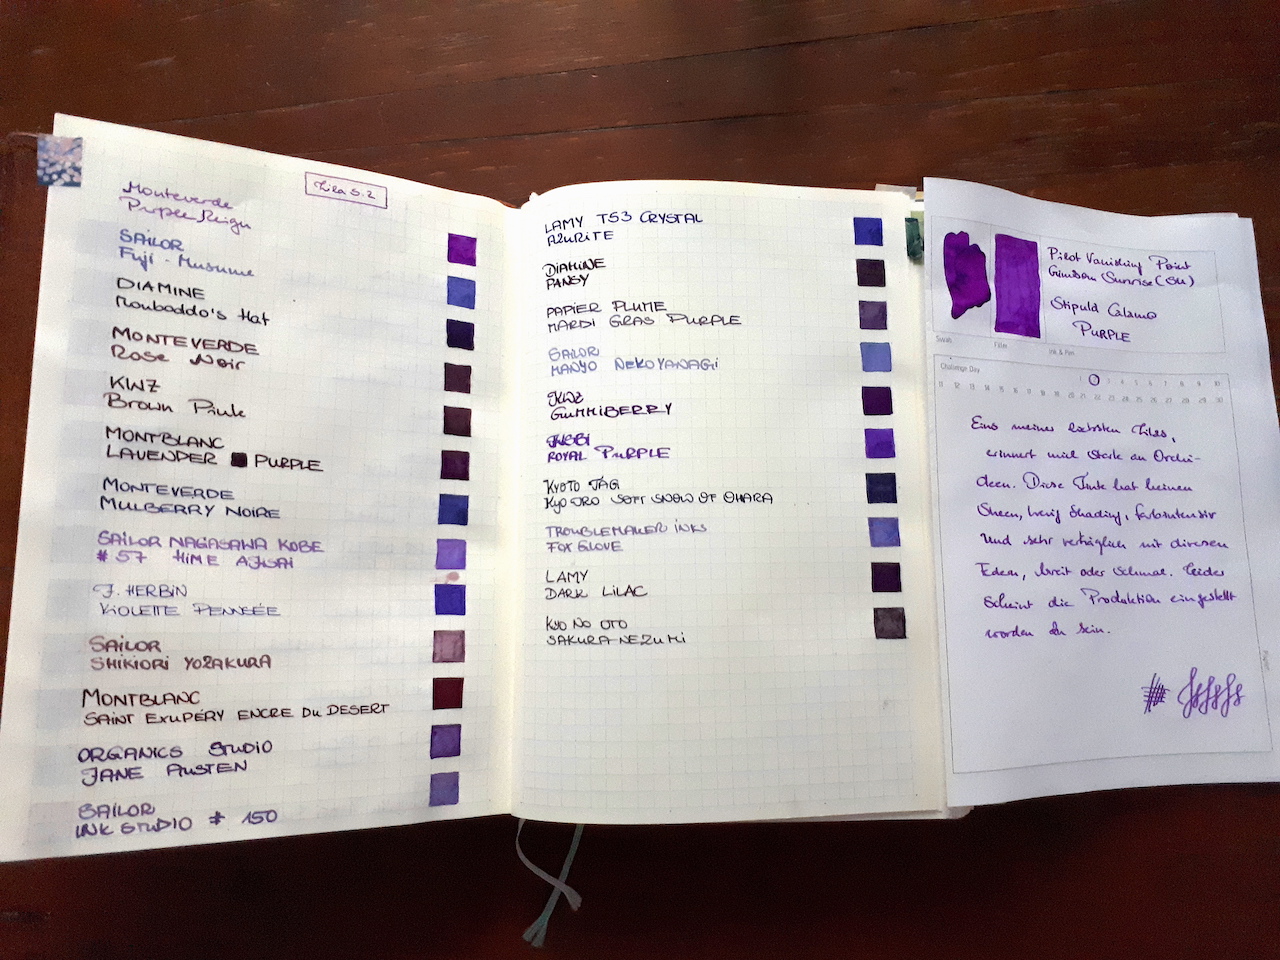 Lila S. 2
Monteverde
Purple Reign
SAILOR
Fuji-Musume
DIAMINE
Monbaddo's Hat
MONTEVERDE
Rose Noir
KWZ
Brown Pink
MONTBLANC
LAVENDER PURPLE
MONTEVERDE
MULBERRY NOIRE
SAILOR NAGASAWA KOBE
#57 HIME AJISAI
J. HERBIN
VIOLETTE PENSÉE
SAILOR
SHIKIORI YOZAKURA
MONTBLANC
SAINT EXUPÉRY ENCRE DU DESERT
ORGANICS STUDIO
JANE AUSTEN
SAILOR
INK STUDIO # 150
LAMY T53 CRYSTAL
AZURITE
DIAMINE
PANSY
PAPIER PLUME
MARDI GRAS PURPLE
SAILOR
MANYO NEKOYANAGI
KWZ
GUMMIBERRY
ROYAL PURPLE
KYOTO TAG
KYO IRO SOFT SNOW OF OHARA
TROUBLEMAKER INKS
FOXGLOVE
LAMY
DARK LILAC
KYO NO OTO
SAKURANEZUMI
Pilot Vanishing Point
Crimson Sunrise (SU)
Stipula Calamo
PURPLE
Swab Filler Ink & Pen
Challenge Day
1 2 3 4 5 6 7 8 9 10
11 12 13 14 15 16 17 18 19 20 21 22 23 24 25 26 27 28 29 30
Eins meiner liebsten Lilas,
erinnert mich stark an Orchi-
deen. Diese Tinte hat keinen
Sheen, wenig Shading, farbintensiv
und sehr verträglich mit diversen
Federn, breit oder schmal. Leider
scheint die Produktion eingestellt
worden zu sein.
Paper